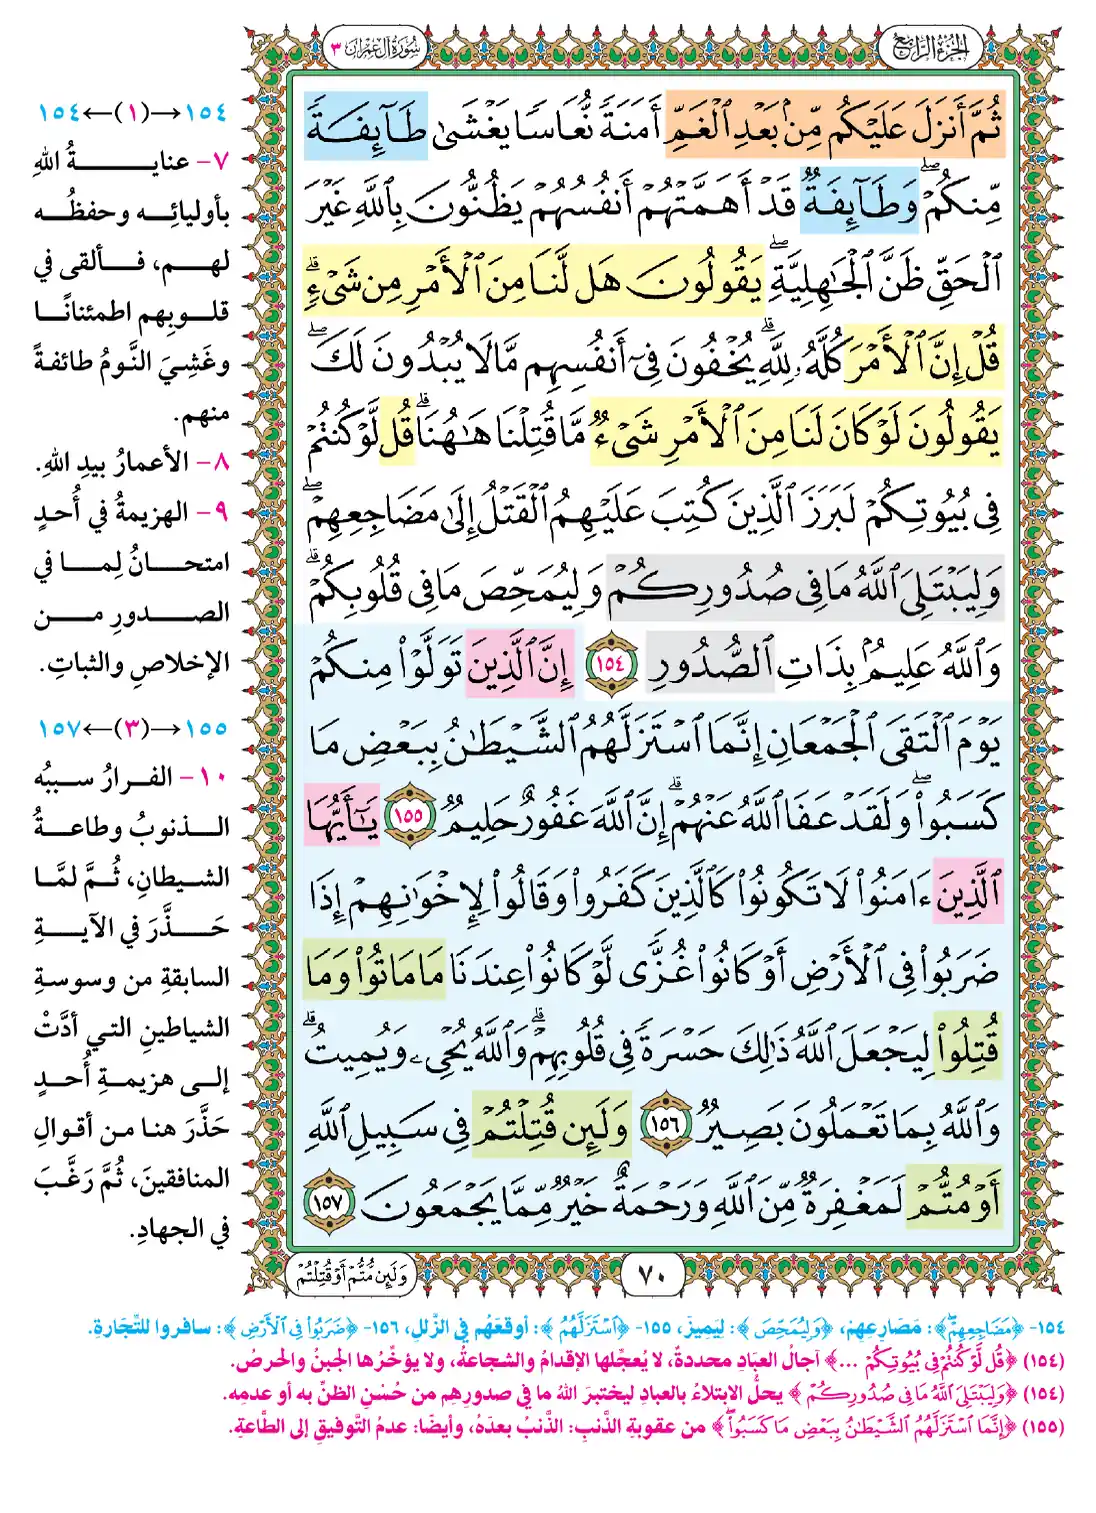 الجزء الرابع
سورة آل عمران ٣
ثُمَّ أَنزَلَ عَلَيْكُم مِّنۢ بَعْدِ ٱلْغَمِّ أَمَنَةً نُّعَاسًا يَغْشَىٰ طَآئِفَةً
مِّنكُمْ ۖ وَطَآئِفَةٌ قَدْ أَهَمَّتْهُمْ أَنفُسُهُمْ يَظُنُّونَ بِٱللَّهِ غَيْرَ
ٱلْحَقِّ ظَنَّ ٱلْجَٰهِلِيَّةِ ۖ يَقُولُونَ هَل لَّنَا مِنَ ٱلْأَمْرِ مِن شَىْءٍ ۗ
قُلْ إِنَّ ٱلْأَمْرَ كُلَّهُۥ لِلَّهِ ۗ يُخْفُونَ فِىٓ أَنفُسِهِم مَّا لَا يُبْدُونَ لَكَ ۖ
يَقُولُونَ لَوْ كَانَ لَنَا مِنَ ٱلْأَمْرِ شَىْءٌ مَّا قُتِلْنَا هَٰهُنَا ۗ قُل لَّوْ كُنتُمْ
فِى بُيُوتِكُمْ لَبَرَزَ ٱلَّذِينَ كُتِبَ عَلَيْهِمُ ٱلْقَتْلُ إِلَىٰ مَضَاجِعِهِمْ ۖ
وَلِيَبْتَلِىَ ٱللَّهُ مَا فِى صُدُورِكُمْ وَلِيُمَحِّصَ مَا فِى قُلُوبِكُمْ ۗ
وَٱللَّهُ عَلِيمٌۢ بِذَاتِ ٱلصُّدُورِ ١٥٤ إِنَّ ٱلَّذِينَ تَوَلَّوْا۟ مِنكُمْ
يَوْمَ ٱلْتَقَى ٱلْجَمْعَانِ إِنَّمَا ٱسْتَزَلَّهُمُ ٱلشَّيْطَٰنُ بِبَعْضِ مَا
كَسَبُوا۟ ۖ وَلَقَدْ عَفَا ٱللَّهُ عَنْهُمْ ۗ إِنَّ ٱللَّهَ غَفُورٌ حَلِيمٌ ١٥٥ يَٰٓأَيُّهَا
ٱلَّذِينَ ءَامَنُوا۟ لَا تَكُونُوا۟ كَٱلَّذِينَ كَفَرُوا۟ وَقَالُوا۟ لِإِخْوَٰنِهِمْ إِذَا
ضَرَبُوا۟ فِى ٱلْأَرْضِ أَوْ كَانُوا۟ غُزًّى لَّوْ كَانُوا۟ عِندَنَا مَا مَاتُوا۟ وَمَا
قُتِلُوا۟ لِيَجْعَلَ ٱللَّهُ ذَٰلِكَ حَسْرَةً فِى قُلُوبِهِمْ ۗ وَٱللَّهُ يُحْىِۦ وَيُمِيتُ ۗ
وَٱللَّهُ بِمَا تَعْمَلُونَ بَصِيرٌ ١٥٦ وَلَئِن قُتِلْتُمْ فِى سَبِيلِ ٱللَّهِ
أَوْ مُتُّمْ لَمَغْفِرَةٌ مِّنَ ٱللَّهِ وَرَحْمَةٌ خَيْرٌ مِّمَّا يَجْمَعُونَ ١٥٧
٧٠
وَلَئِن مُّتُّمْ أَوْ قُتِلْتُمْ
١٥٤←(١)→١٥٤
٧- عنايةُ اللهِ
بأوليائِه وحفظُه
لهم، فألقى في
قلوبِهم اطمئنانًا
وغَشِيَ النَّومُ طائفةً
منهم.
٨- الأعمارُ بيدِ اللهِ.
٩- الهزيمةُ في أُحدٍ
امتحانٌ لِما في
الصدورِ من
الإخلاصِ والثباتِ.
١٥٥←(٣)→١٥٧
١٠- الفرارُ سببُه
الذنوبُ وطاعةُ
الشيطانِ، ثُمَّ لمَّا
حَذَّرَ في الآيةِ
السابقةِ من وسوسةِ
الشياطينِ التي أدَّتْ
إلى هزيمةِ أُحدٍ
حَذَّرَ هنا من أقوالِ
المنافقينَ، ثُمَّ رَغَّبَ
في الجهادِ.
١٥٤- ﴿مَضَاجِعِهِمْ ۖ﴾: مَصَارِعِهِمْ، ﴿وَلِيُمَحِّصَ﴾: لِيَمِيزَ، ١٥٥- ﴿ٱسْتَزَلَّهُمُ﴾: أوقعَهُم في الزَّللِ، ١٥٦- ﴿ضَرَبُوا۟ فِى ٱلْأَرْضِ﴾: سافروا للتِّجارةِ.
(١٥٤) ﴿قُل لَّوْ كُنتُمْ فِى بُيُوتِكُمْ ...﴾ آجالُ العبادِ محددةٌ، لا يُعجِّلها الإقدامُ والشجاعةُ، ولا يؤخِّرُها الجبنُ والحرصُ.
(١٥٤) ﴿وَلِيَبْتَلِىَ ٱللَّهُ مَا فِى صُدُورِكُمْ﴾ يحلُّ الابتلاءُ بالعبادِ ليختبرَ اللهُ ما في صدورِهم من حُسْنِ الظنِّ به أو عدمِه.
(١٥٥) ﴿إِنَّمَا ٱسْتَزَلَّهُمُ ٱلشَّيْطَٰنُ بِبَعْضِ مَا كَسَبُوا۟ ۖ﴾ من عقوبةِ الذَّنبِ: الذَّنبُ بعدَهُ، وأيضًا: عدمُ التَّوفيقِ إلى الطَّاعةِ.